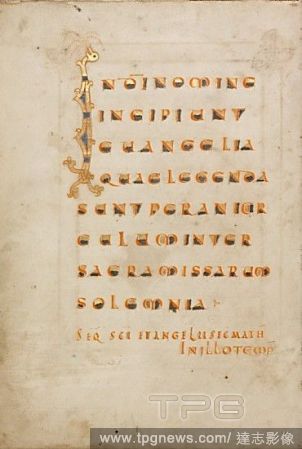 IN DĪ NOMINE
INCIPIUNT
EUANGELIA
QUAE LEGENDA
SUNT PER ANNI CIR
CULUM INTER
SACRA MISSARUM
SOLEMNIA
SEQ SCI EVANGELII SEC MATH
IN ILLO TEMP
TPG
www.tpgnews.com/達志影像